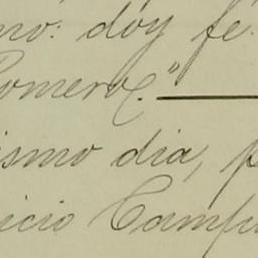 mo: doy fe.
Romero."
ismo dia, p
icio Camp